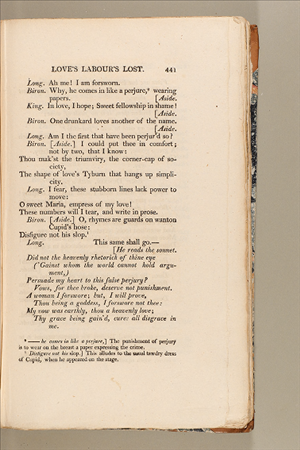 LOVE'S LABOUR'S LOST. 441
Long. Ah me! I am forsworn.
Biron. Why, he comes in like a perjure,⁸ wearing
papers. [Aside.
King. In love, I hope; Sweet fellowship in shame!
[Aside.
Biron. One drunkard loves another of the name.
[Aside.
Long. Am I the first that have been perjur'd so?
Biron. [Aside.] I could put thee in comfort;
not by two, that I know:
Thou mak'st the triumviry, the corner-cap of so-
ciety,
The shape of love's Tyburn that hangs up simpli-
city.
Long. I fear, these stubborn lines lack power to
move:
O sweet Maria, empress of my love!
These numbers will I tear, and write in prose.
Biron. [Aside.] O, rhymes are guards on wanton
Cupid's hose:
Disfigure not his slop.⁹
Long. This same shall go.—
[He reads the sonnet.
Did not the heavenly rhetorick of thine eye
('Gainst whom the world cannot hold argu-
ment,)
Persuade my heart to this false perjury?
Vows, for thee broke, deserve not punishment.
A woman I forswore; but, I will prove,
Thou being a goddess, I forswore not thee:
My vow was earthly, thou a heavenly love;
Thy grace being gain'd, cures all disgrace in
me.
⁸ —— he comes in like a perjure,] The punishment of perjury
is to wear on the breast a paper expressing the crime.
⁹ Disfigure not his slop.] This alludes to the usual tawdry dress
of Cupid, when he appeared on the stage.